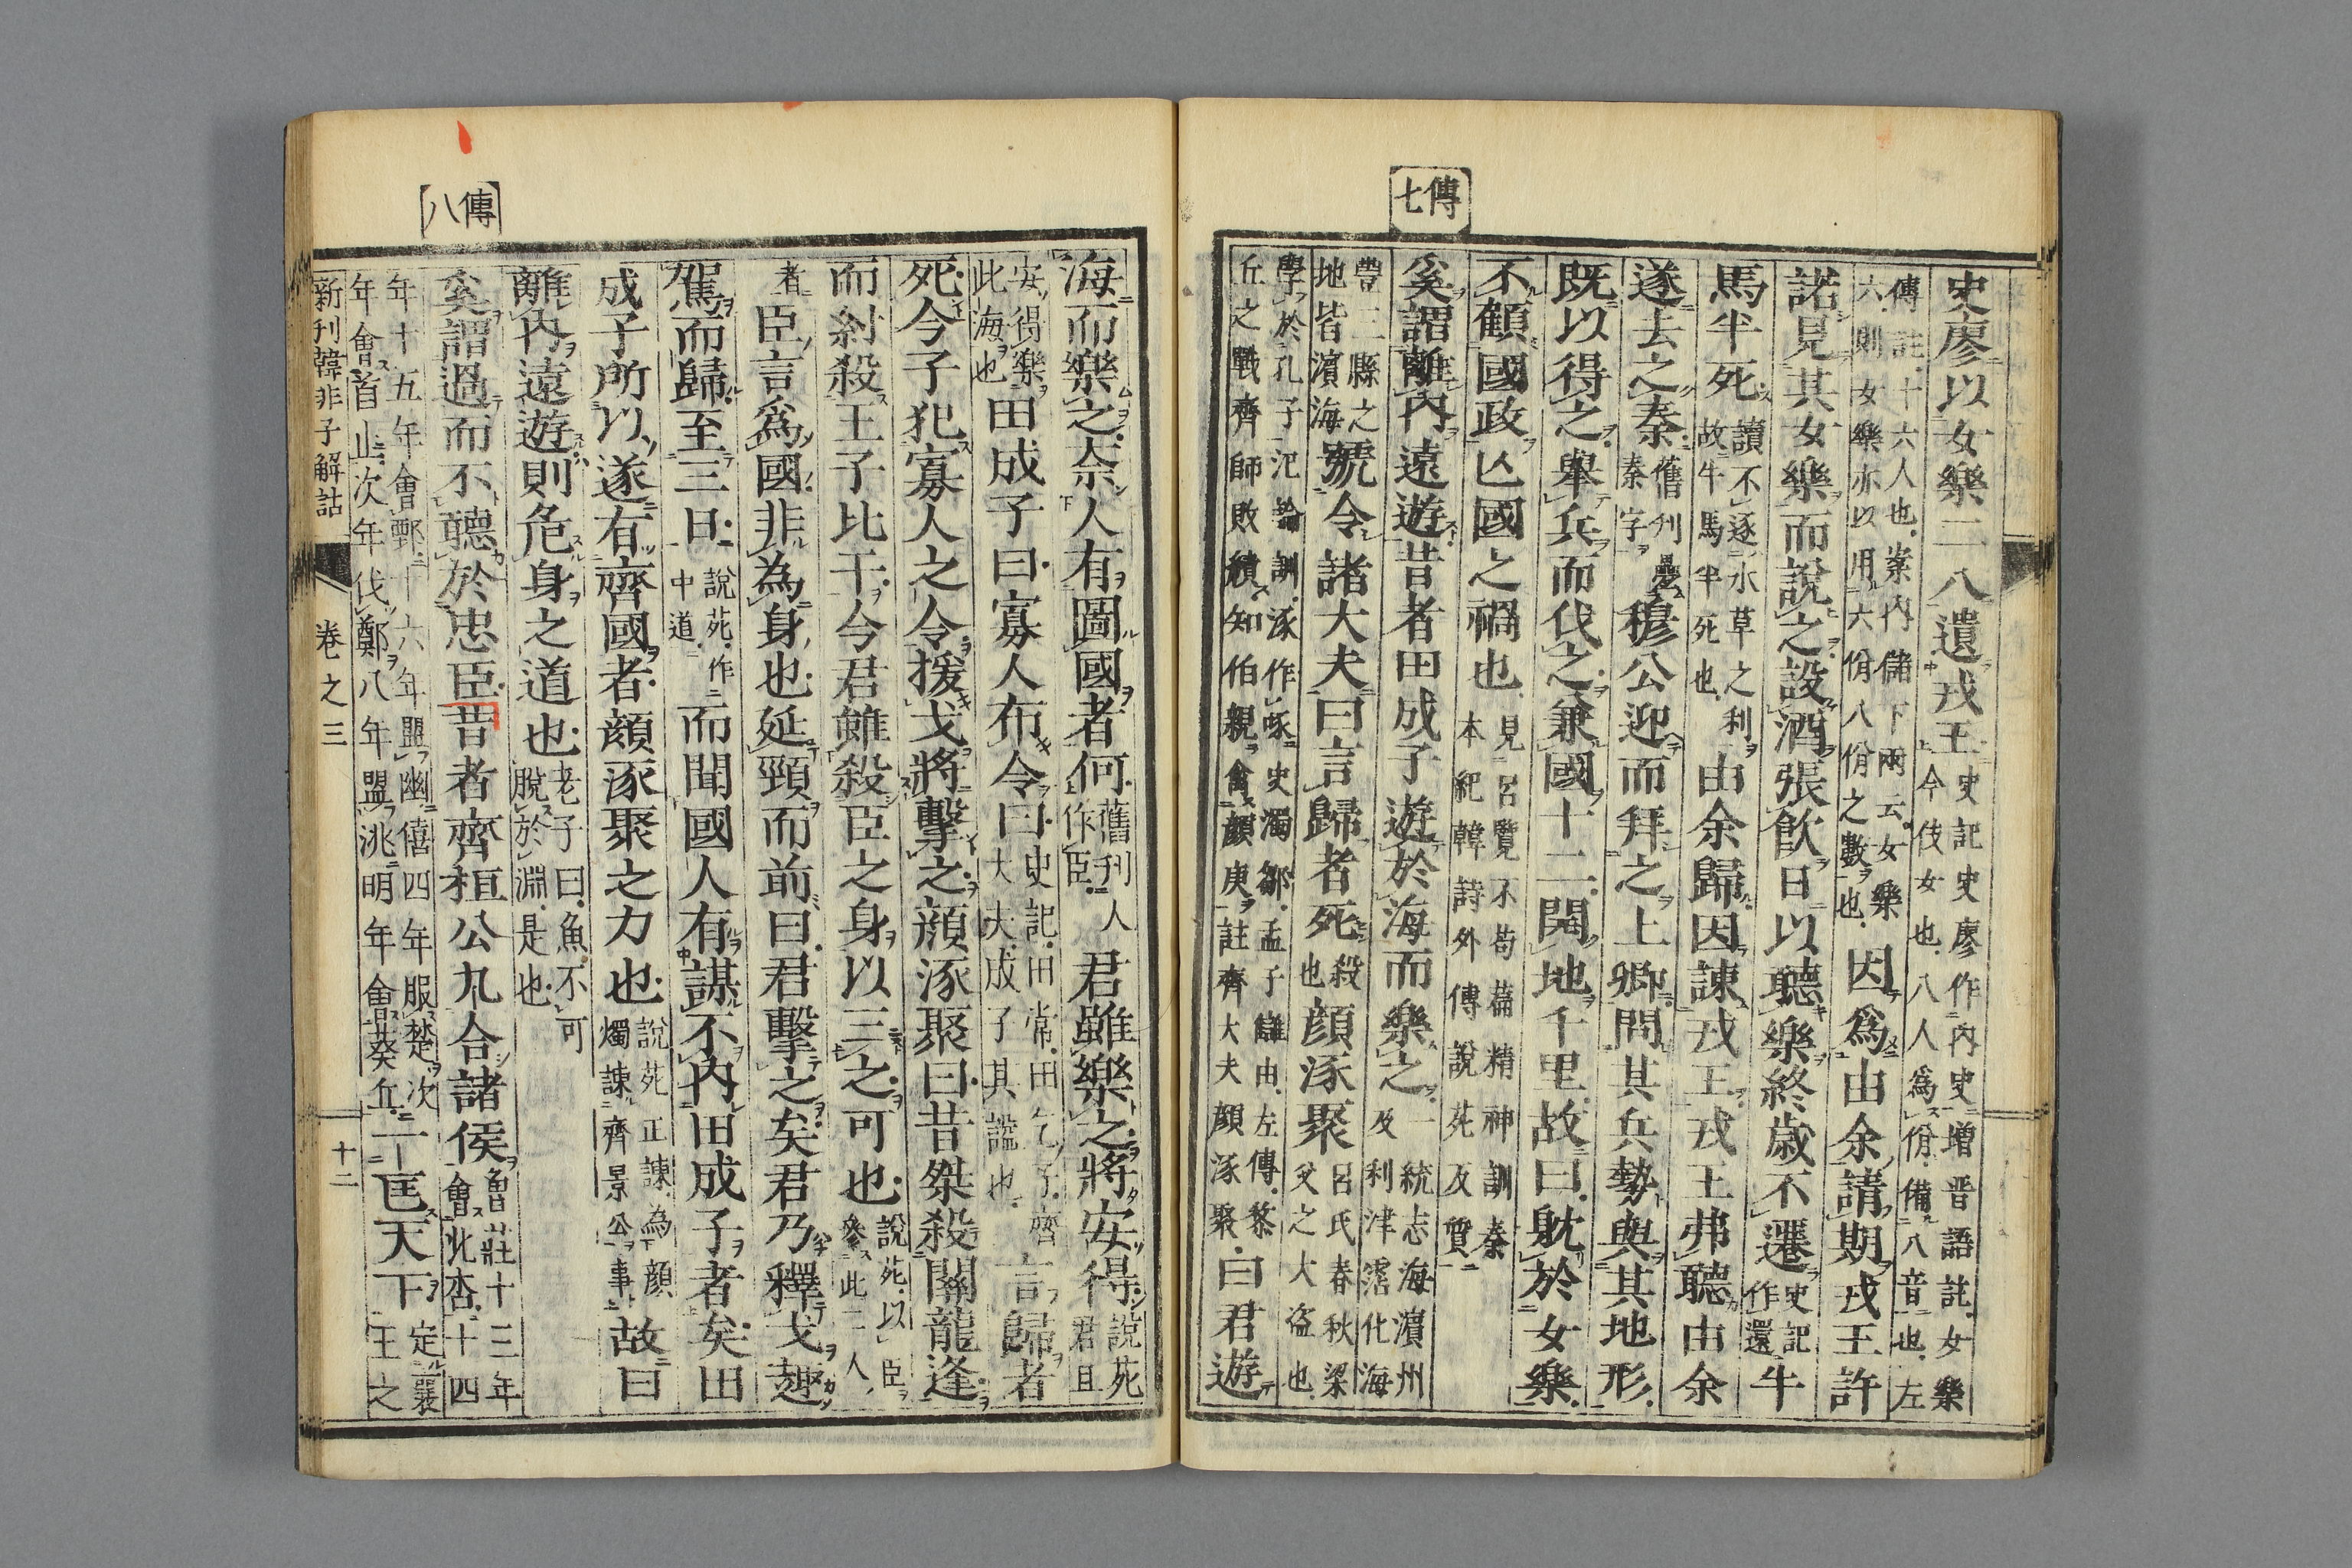 傳七
史廖以女樂二八遺戎王史記史廖作内史增晋語註女樂今伎女也八人爲佾備八音也左
傳註十六人也案内儲下兩云女樂六則女樂亦以用六佾八佾之數也因爲由余請期戎王許
諾見其女樂而說之設酒張飮日以聽樂終歲不遷史記作還牛
馬半死讀不逐水草之利故牛馬半死也由余歸因諫戎王戎王弗聽由余
遂去之秦舊刋疊秦字穆公迎而拜之上卿問其兵勢與其地形
既以得之舉兵而伐之兼國十二開地千里故曰躭於女樂
不顧國政亾國之禍也見呂覽不苟篇精神訓秦本紀韓詩外傳說苑反質
奚謂離内遠遊昔者田成子遊於海而樂之一統志海濱州及利津霑化海
豊三縣之地皆濱海號令諸大夫曰言歸者死殺也顏涿聚呂氏春秋梁父之大盗也
學於孔子汜論訓涿作啄史濁鄒孟子讎由左傳黎丘之戰齊師敗績知伯親禽顏庚註齊大夫顏涿聚曰君遊
傳八
海而樂之柰人有圖國者何舊刋人作臣君雖樂之將安得說苑君且
安得樂此海也田成子曰寡人布令曰史記田常田乞子齊大夫成子其謚也言歸者
死今子犯寡人之令援戈將擊之顏涿聚曰昔桀殺關龍逢
而紂殺王子比干今君雖殺臣之身以三之可也說苑以臣參此二人
者臣言爲國非為身也延頸而前曰君擊之矣君乃釋戈趣
駕而歸至三日說苑作中道而聞國人有謀不内田成子者矣田
成子所以遂有齊國者顏涿聚之力也說苑正諫為顏燭諫齊景公事故曰
離内遠遊則危身之道也老子曰魚不可脫於淵是也
奚謂過而不聽於忠臣昔者齊桓公九合諸侯魯莊十三年會北杏十四
年十五年會鄄十六年盟幽僖四年服楚次年會首止次年伐鄭八年盟洮明年會葵丘一匡天下定襄王之
新刋韓非子解詁 卷之三 十二